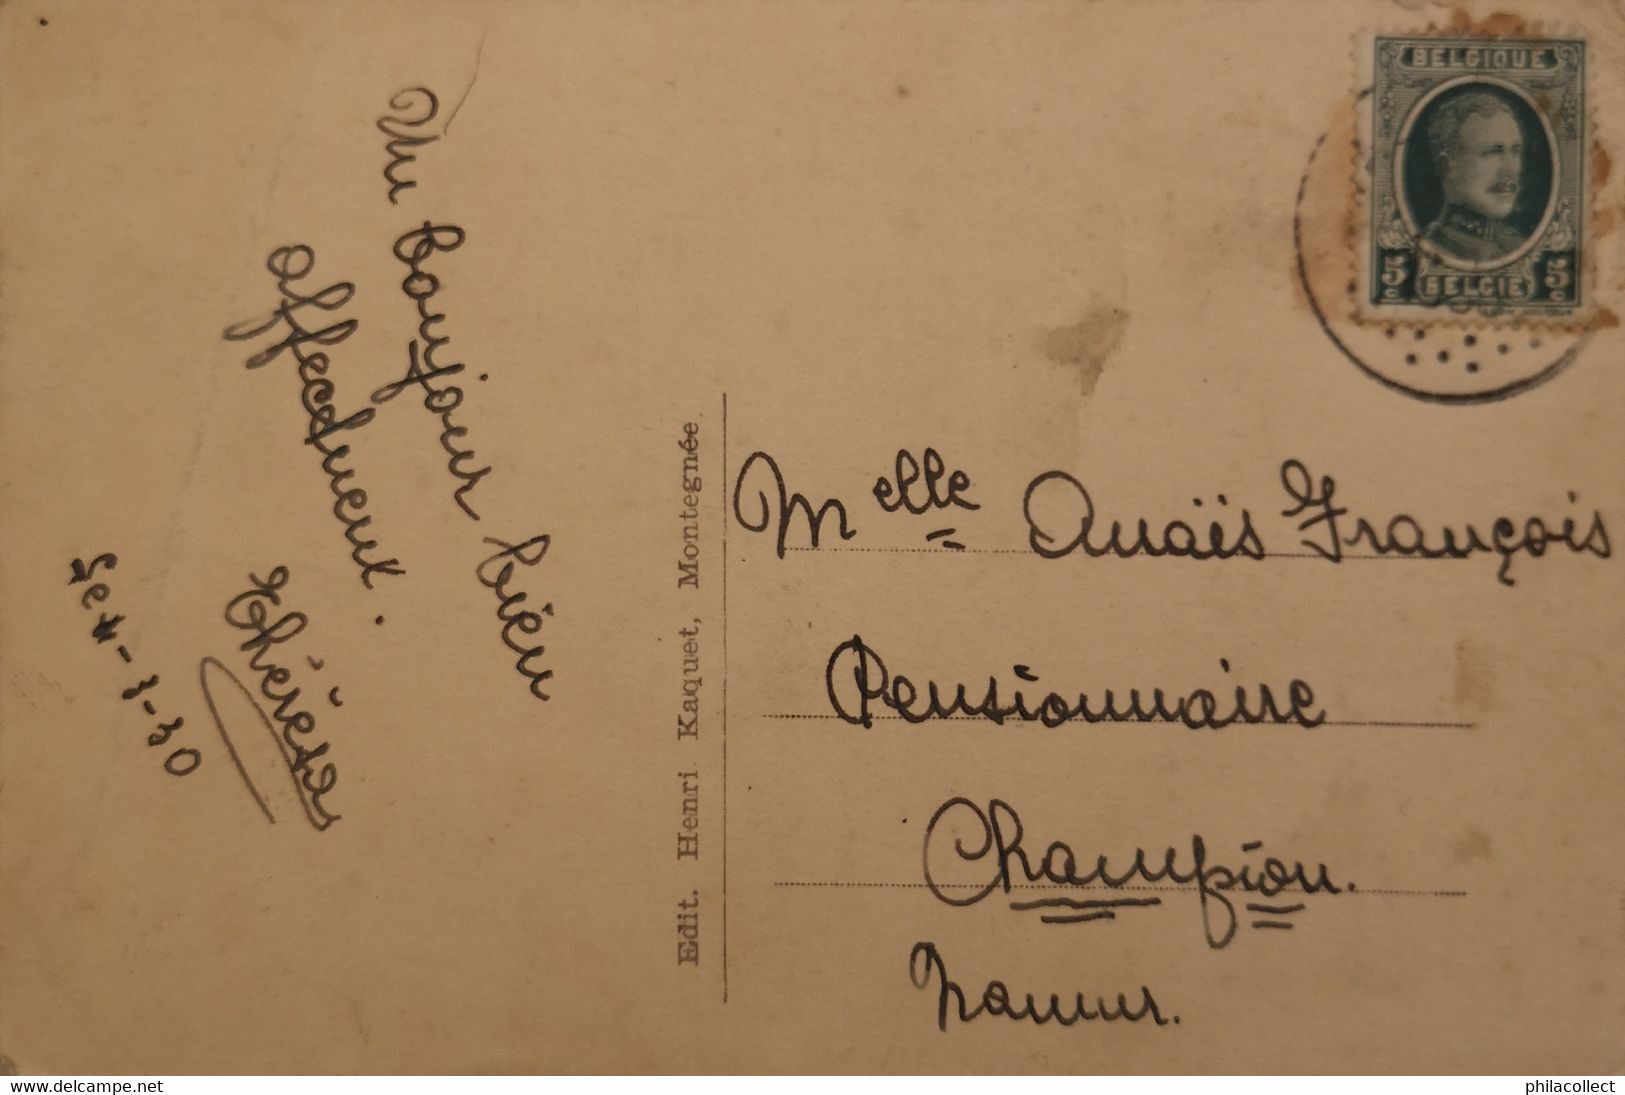 Un bonjour bien
affectueux.
Thérésa
BELGIQUE
5c BELGIË 5c
Edit. Henri Kaquet, Montegnée
Melle Anaïs François
Pensionnaire
Champion.
Namur.
www.delcampe.net
philacollect